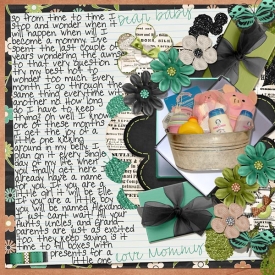 Dear baby
so from time to time I
stop and wonder when it
will happen when will I
become a mommy I've
spent the last couple of
years wondering the answer
to that very question. I
try my best not to
wonder too much every
month I go through the
same thing everytime with
another no. How long
do I have to keep
trying oh well I know
one of these months
I get the joy of a
little one kicking
around in my belly. I
plan on it every single
day of my life. When
you finally get here I
already have a name
for you. If you are a
little girl it will be Elle
if you are a little boy
you will be named Alexander
I just can't wait all your
aunts, uncles, and Grand
parents are just as excited
too they keep saying is it
time to fill boxes with
presents for a
little one
Love Mommy